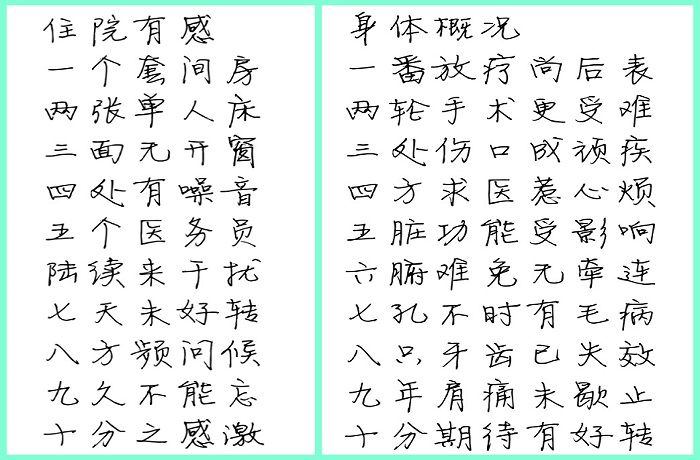 住院有感
一个套间房
两张单人床
三面无开窗
四处有噪音
五个医务员
陆续来干扰
七天未好转
八方频问候
九久不能忘
十分之感激
身体概况
一番放疗尚后表
两轮手术更受难
三处伤口成顽疾
四方求医惹心烦
五脏功能受影响
六腑难免无牵连
七孔不时有毛病
八只牙齿已失效
九年肩痛未歇止
十分期待有好转